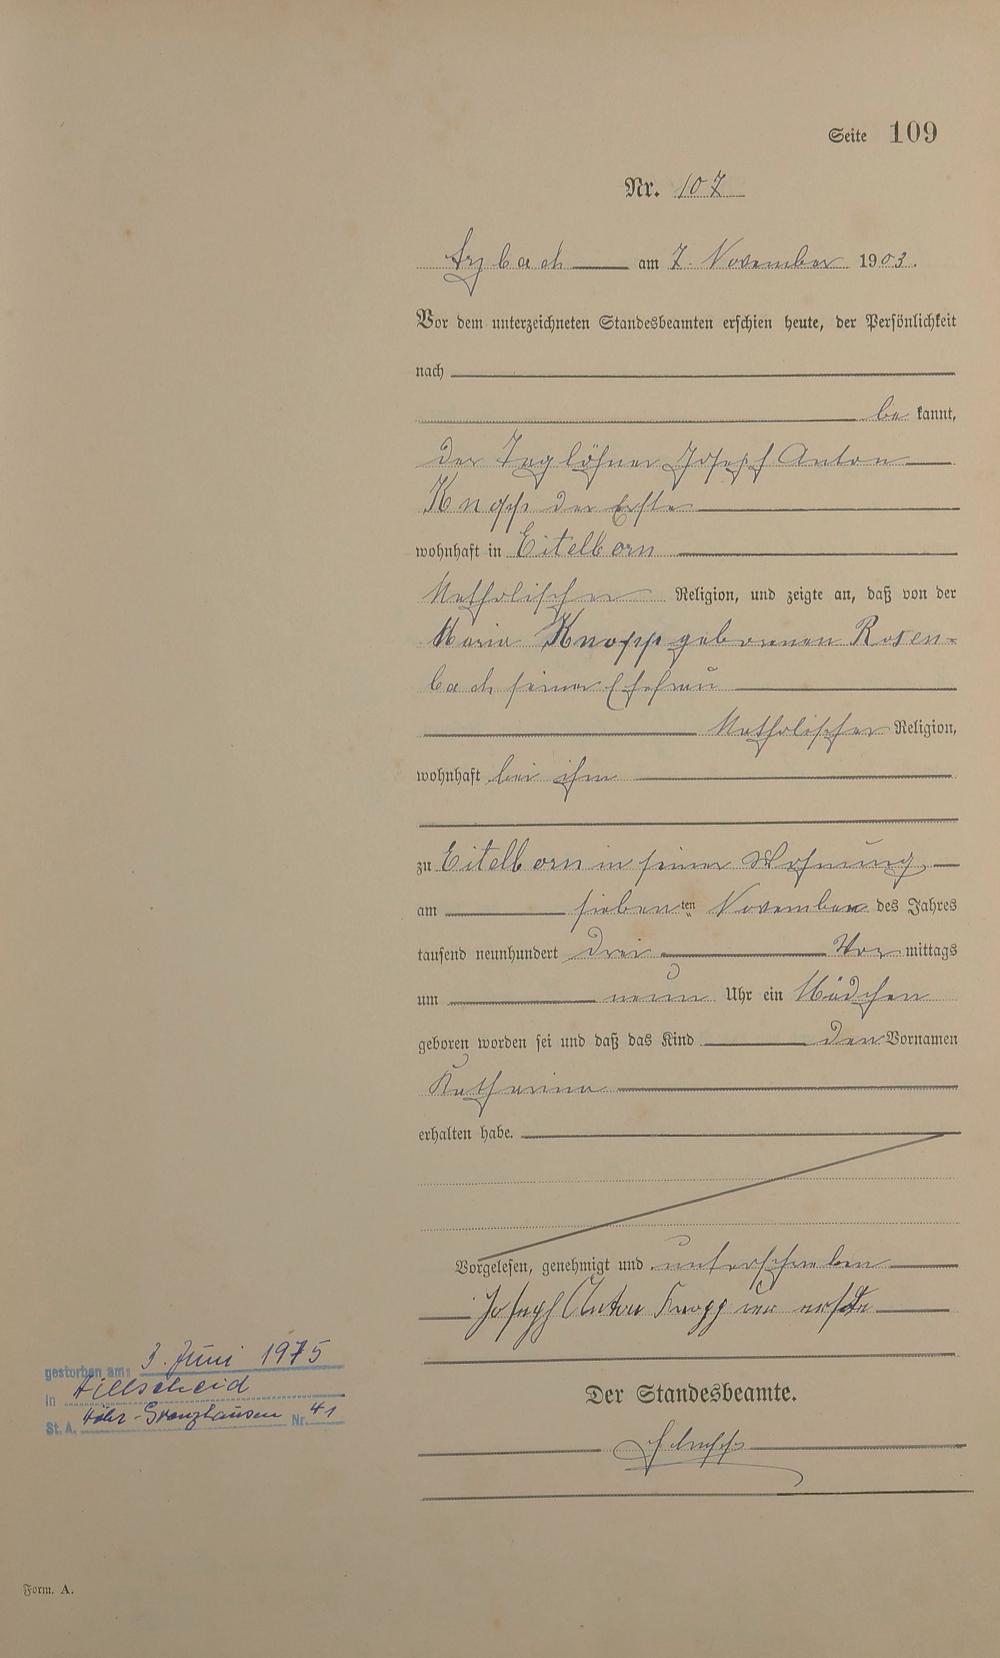 Seite 109
Nr. 107
Arzbach am 7. November 1903.
Vor dem unterzeichneten Standesbeamten erschien heute, der Persönlichkeit
nach
be kannt,
der Taglöhner Joseph Anton
Knopp der Erste
wohnhaft in Eitelborn
Katholischer Religion, und zeigte an, daß von der
Maria Knopp geborenen Rosen-
bach seiner Ehefrau
Katholischer Religion,
wohnhaft bei ihm
zu Eitelborn in seiner Wohnung
am siebenten November des Jahres
tausend neunhundert drei Vor mittags
um neun Uhr ein Mädchen
geboren worden sei und daß das Kind den Vornamen
Katharina
erhalten habe.
Vorgelesen, genehmigt und unterschrieben
Joseph Anton Knopp der erste
gestorben am: 3. Juni 1975
in Hillscheid
St. A. Höhr-Grenzhausen Nr. 41
Der Standesbeamte.
Form. A.